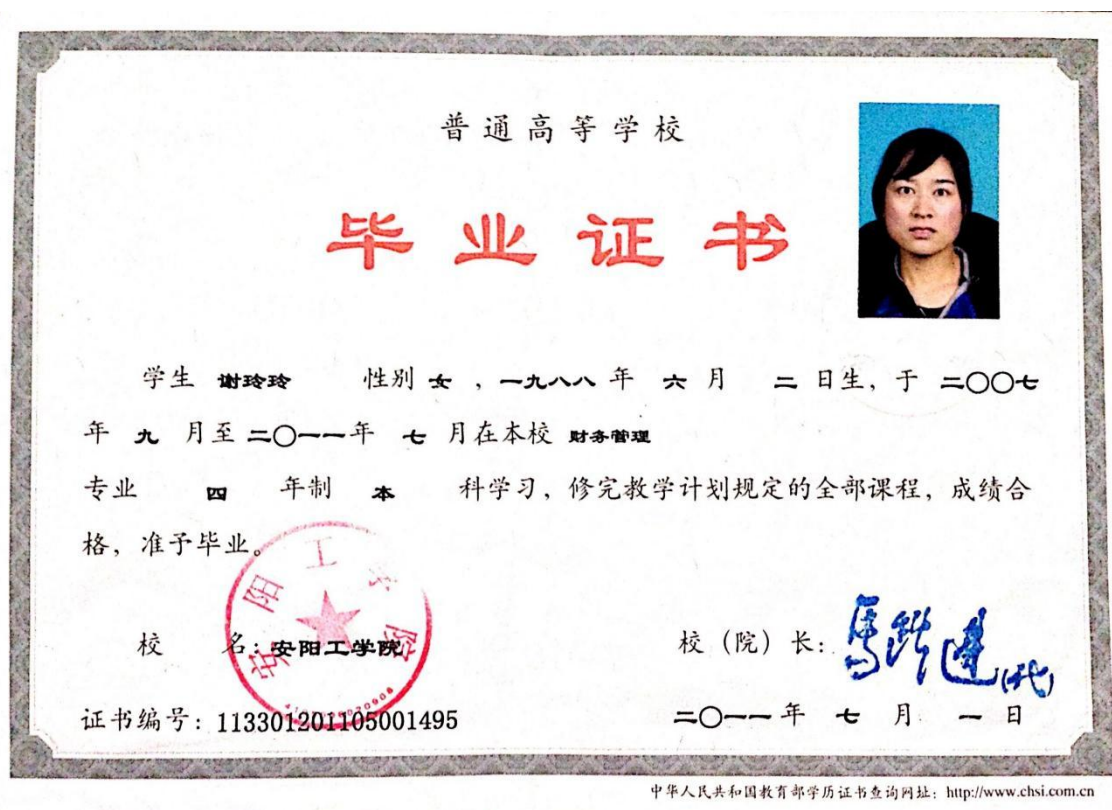 普通高等学校
毕业证书
学生 谢玲玲 性别 女 ，一九八八 年 六 月 二 日生，于 二〇〇七
年 九 月至 二〇一一 年 七 月在本校 财务管理
专业 四 年制 本 科学习，修完教学计划规定的全部课程，成绩合
格，准予毕业。
安阳工学院
校 名：安阳工学院 校（院）长：
(代)
证书编号：113301201105001495 二〇一一 年 七 月 一 日
中华人民共和国教育部学历证书查询网址：http://www.chsi.com.cn